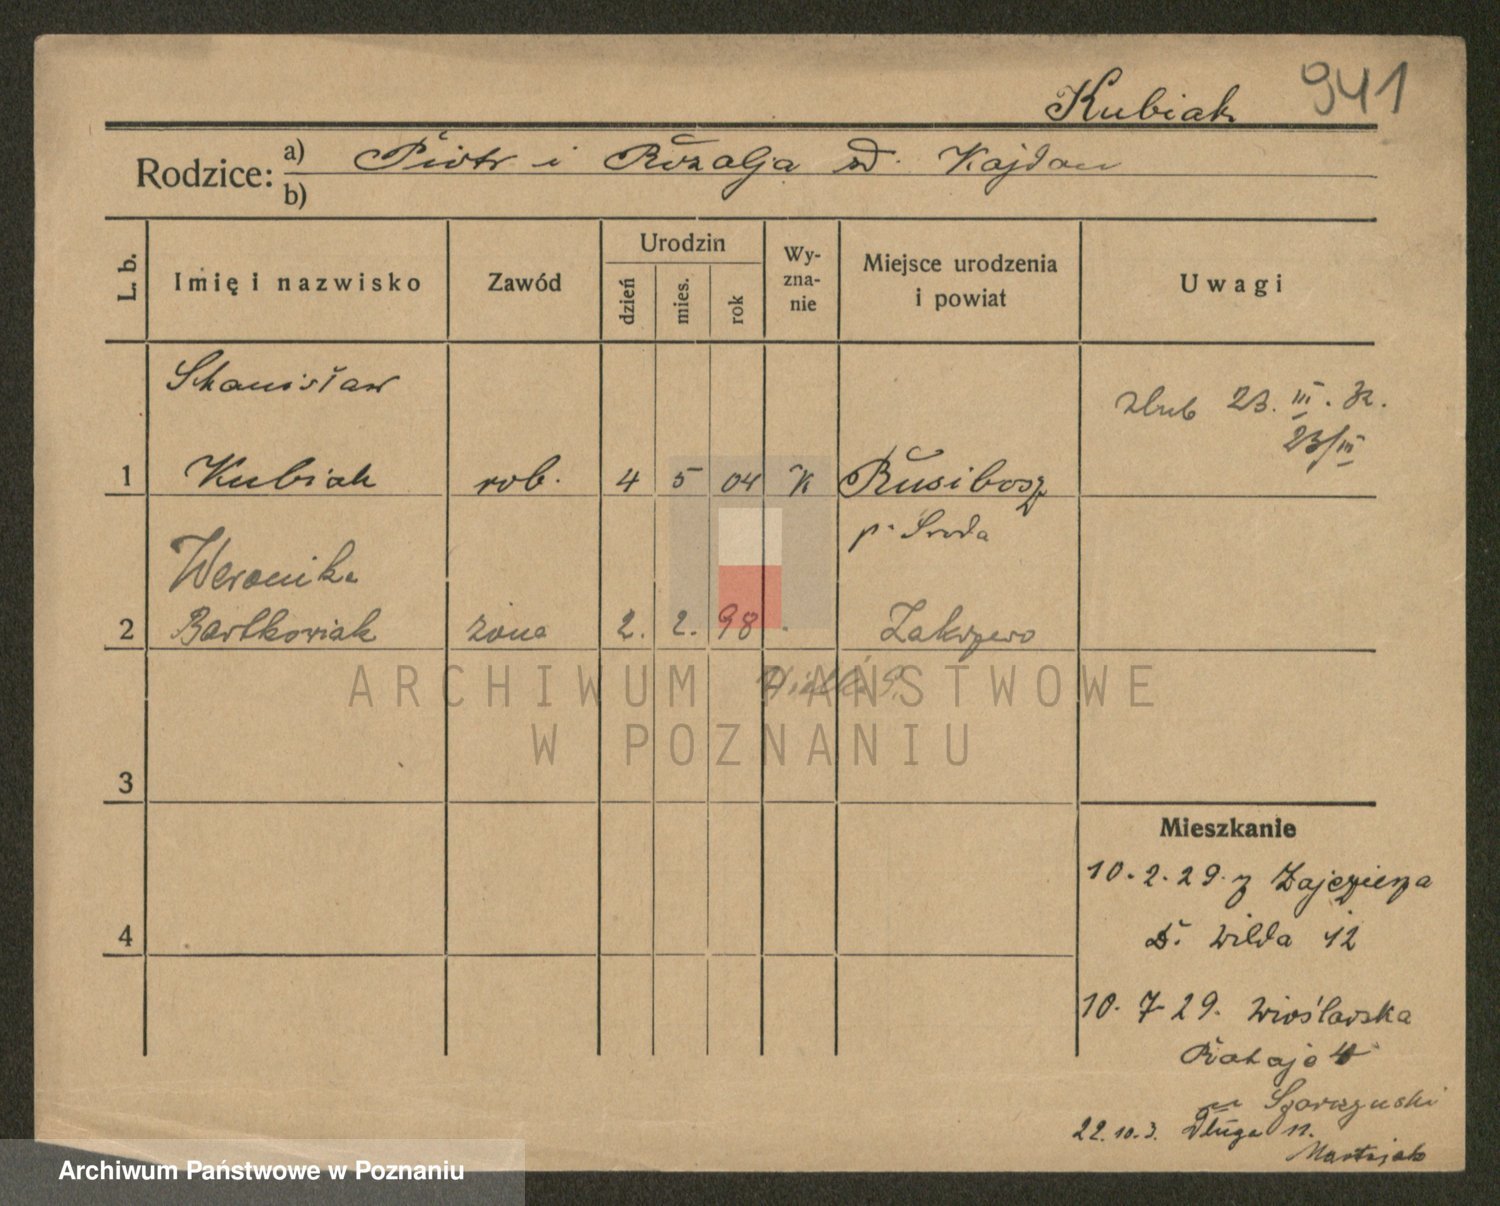 Kubiak 941
Rodzice: a) Piotr i Rozalja zd. Kajdan
b)
L. b.
Imię i nazwisko
Zawód
Urodzin
dzień
mies.
rok
Wy-
zna-
nie
Miejsce urodzenia
i powiat
Uwagi
Stanisław
ślub 23. III. 32.
23/III
1 Kubiak rob. 4 5 04 K Rusibosz
p. Środa
Weronika
2 Bartkowiak żona 2. 2. 98 Zakrzewo
ARCHIWUM PAŃSTWOWE
W POZNANIU
3
4
Mieszkanie
10.2.29. z Zajezierza
D. Wilda 12
10.7.29. Wioślarska
Rataje
22.10.3. Długa 11.
Archiwum Państwowe w Poznaniu